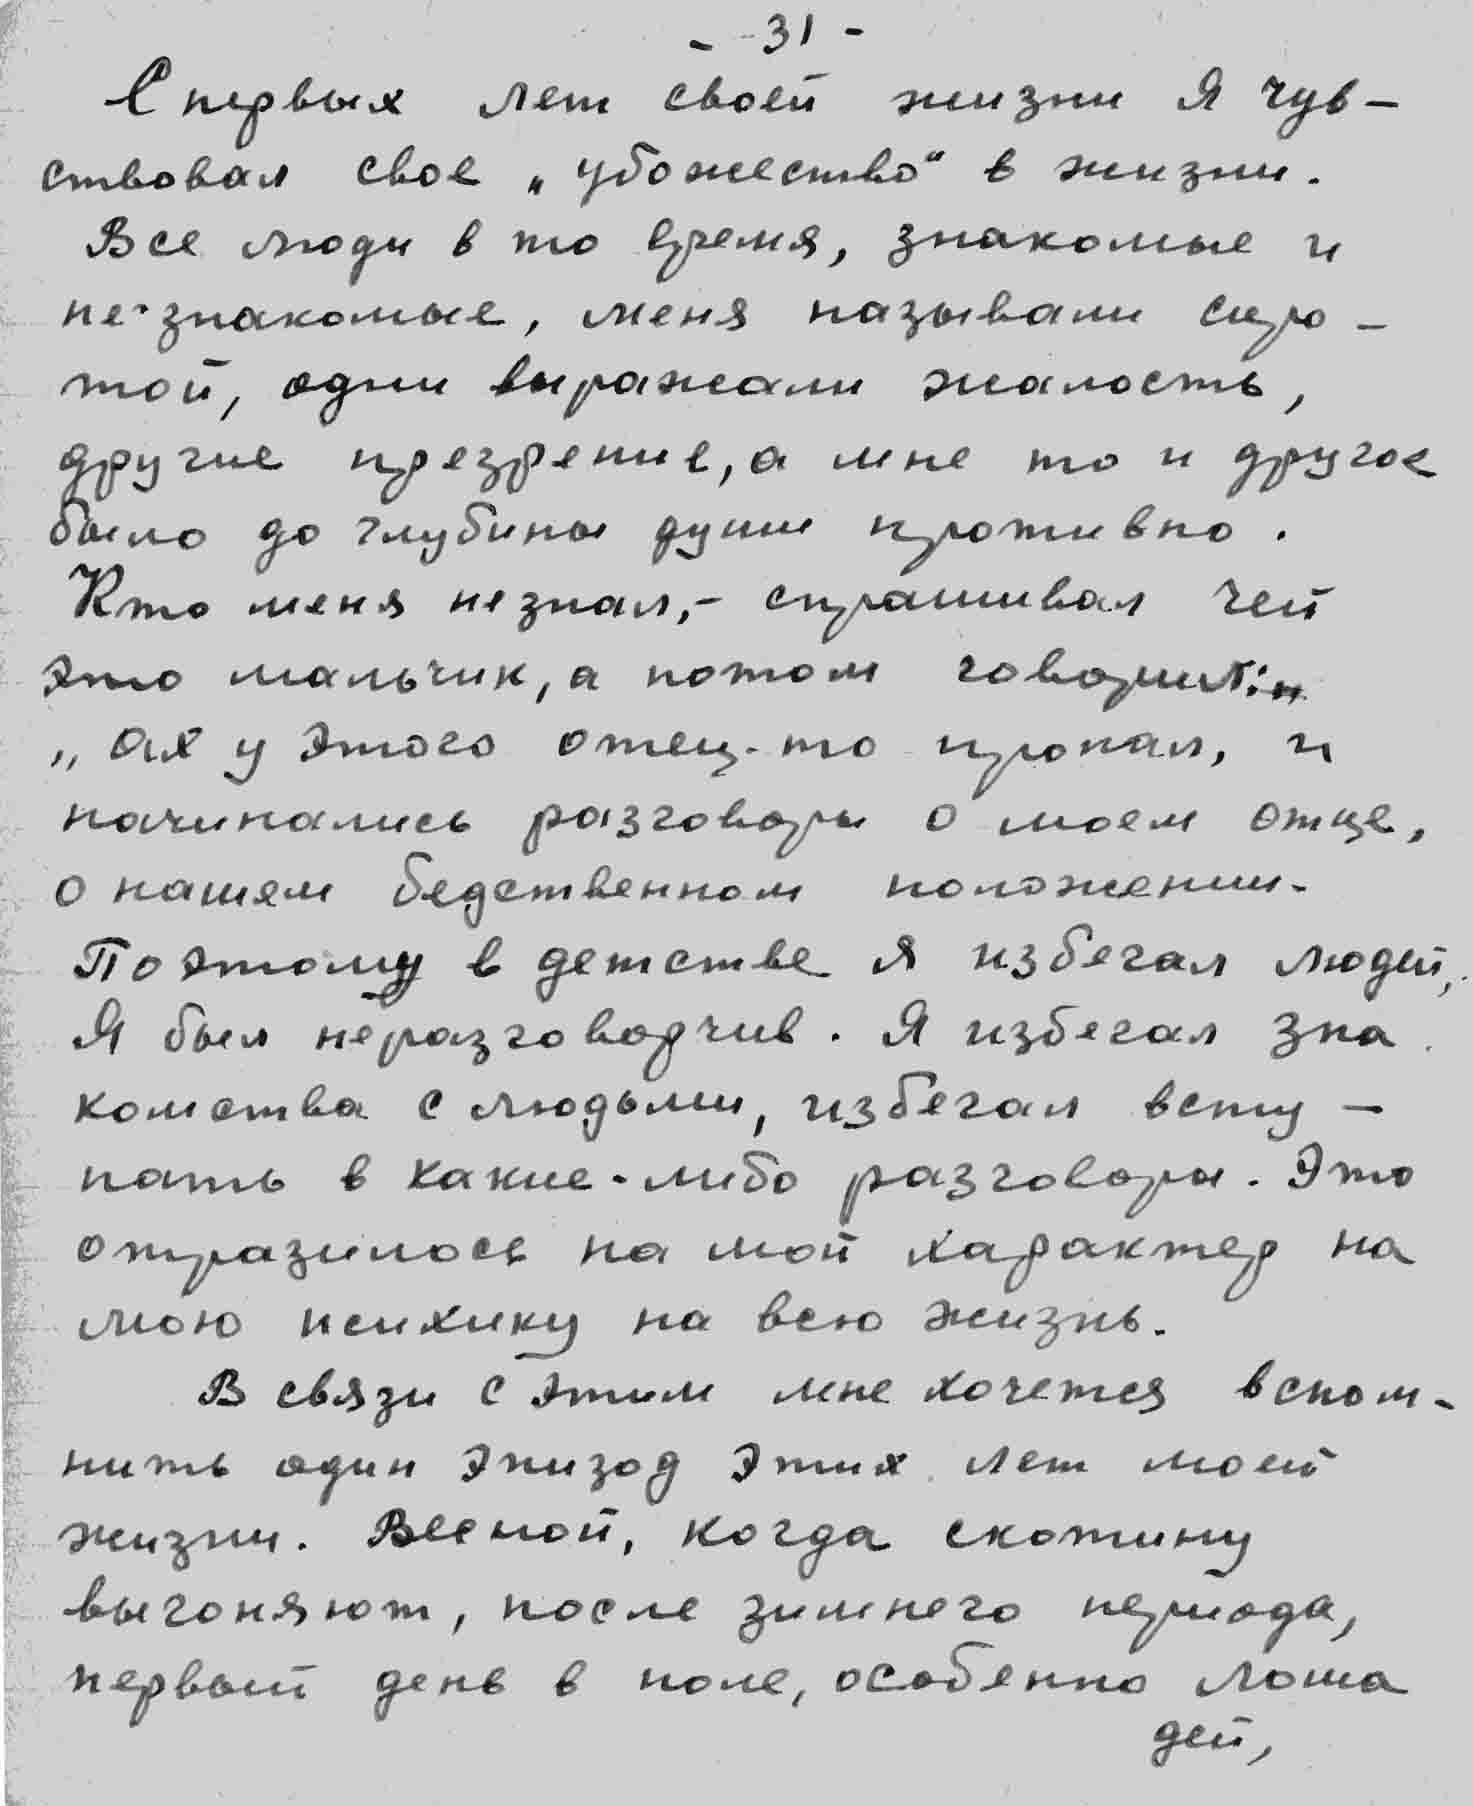 - 31 -
С первых лет своей жизни я чув-
ствовал свое „убожество“ в жизни.
Все люди в то время, знакомые и
не-знакомые, меня называли сиро-
той, одни выражали жалость,
другие презрение, а мне то и другое
было до глубины души противно.
Кто меня незнал,- спрашивал чей
это мальчик, а потом говорили:
„Ах у этого отец-то пропал, и
начинались разговоры о моем отце,
о нашем бедственном положении.
Поэтому в детстве я избегал людей,
Я был неразговорчив. Я избегал зна
комства с людьми, избегал всту-
пать в какие-либо разговоры. Это
отразилось на мой характер на
мою психику на всю жизнь.
В связи с этим мне хочется вспом-
нить один эпизод этих лет моей
жизни. Весной, когда скотину
выгоняют, после зимнего периода,
первый день в поле, особенно лоша
дей,